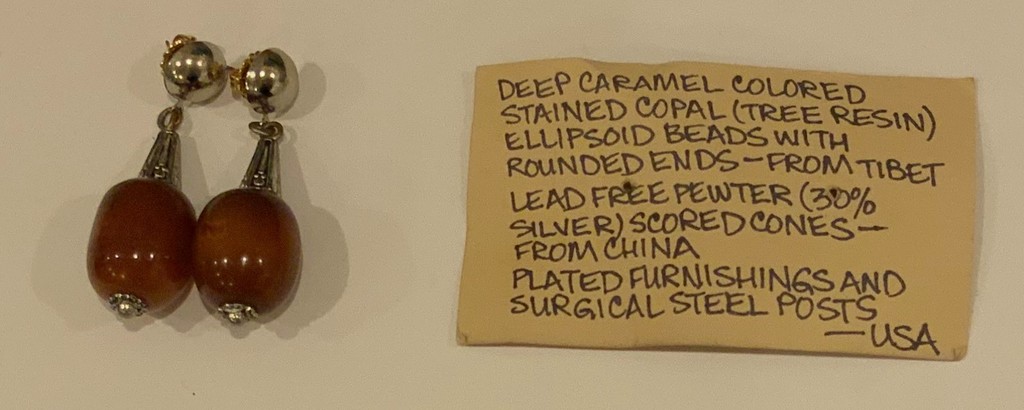 DEEP CARAMEL COLORED
STAINED COPAL (TREE RESIN)
ELLIPSOID BEADS WITH
ROUNDED ENDS—FROM TIBET
LEAD FREE PEWTER (30%
SILVER) SCORED CONES—
FROM CHINA
PLATED FURNISHINGS AND
SURGICAL STEEL POSTS
—USA